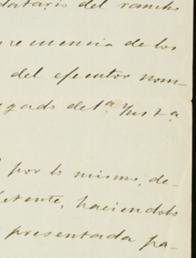 datario del rancho
presencia de los
del ejecutor nom-
gado de 1ª Insta
por lo mismo, de-
haciendolo
presentada pa-